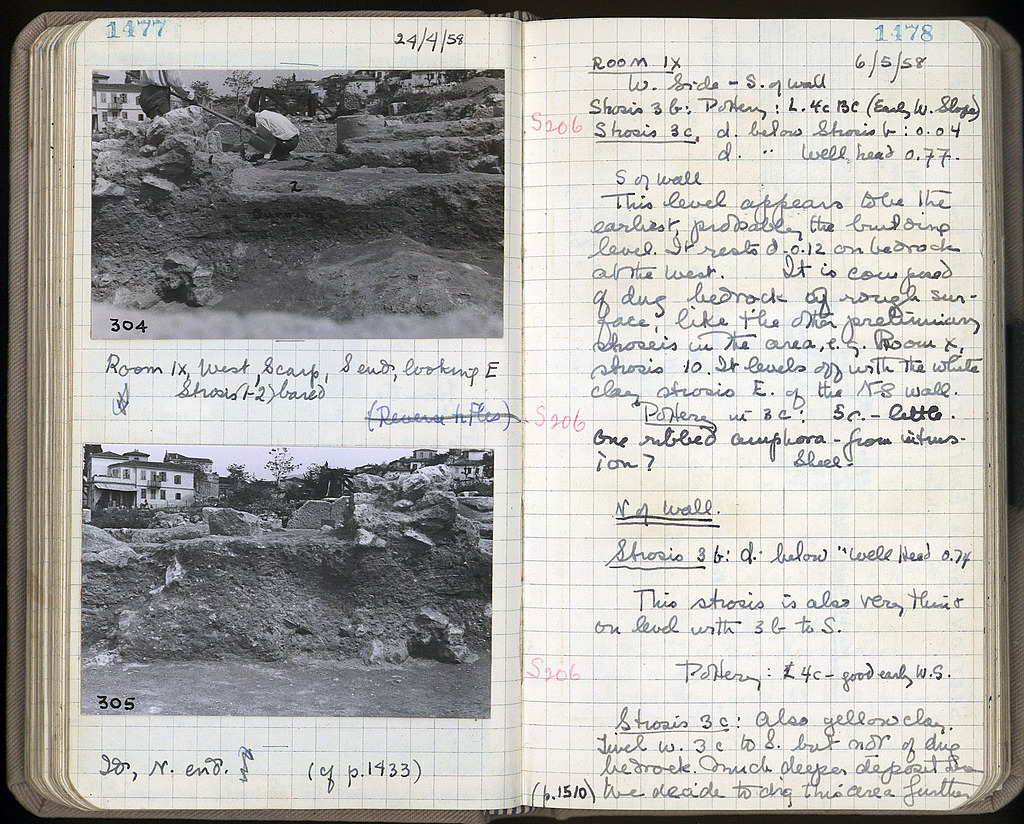 1477
24/4/58
2
Burning
304
Room IX, West Scarp, S end, looking E
Strosis (-2) bared
(Reverse to Files)
305
Id, N. end.
(cf p.1433)
1478
ROOM IX 6/5/58
W. Side - S. of wall
Strosis 3b: Pottery: L. 4c BC (Early W. Slope)
S206
Strosis 3c, d. below Strosis b: 0.04
d. " Well head 0.77.
S of wall
This level appears to be the
earliest, probably the building
level. It rests d. 0.12 on bedrock
at the west. It is composed
of dug bedrock of rough sur-
face, like the other preliminary
stroseis in the area, e.g. Room X,
strosis 10. It levels off with the white
clay strosis E. of the N-S wall.
S206
Pottery in 3c: 5c. - little.
one ribbed amphora - from intrus-
ion?
N of wall.
Strosis 3b: d. below "Well Head 0.74
This strosis is also very thin &
on level with 3b to S.
S206
Pottery: L 4c - good early W.S.
Strosis 3c: Also yellow clay.
Level w. 3c to S. but not of dug
bedrock. Much deeper deposit
(p.1510) We decide to dig this area further